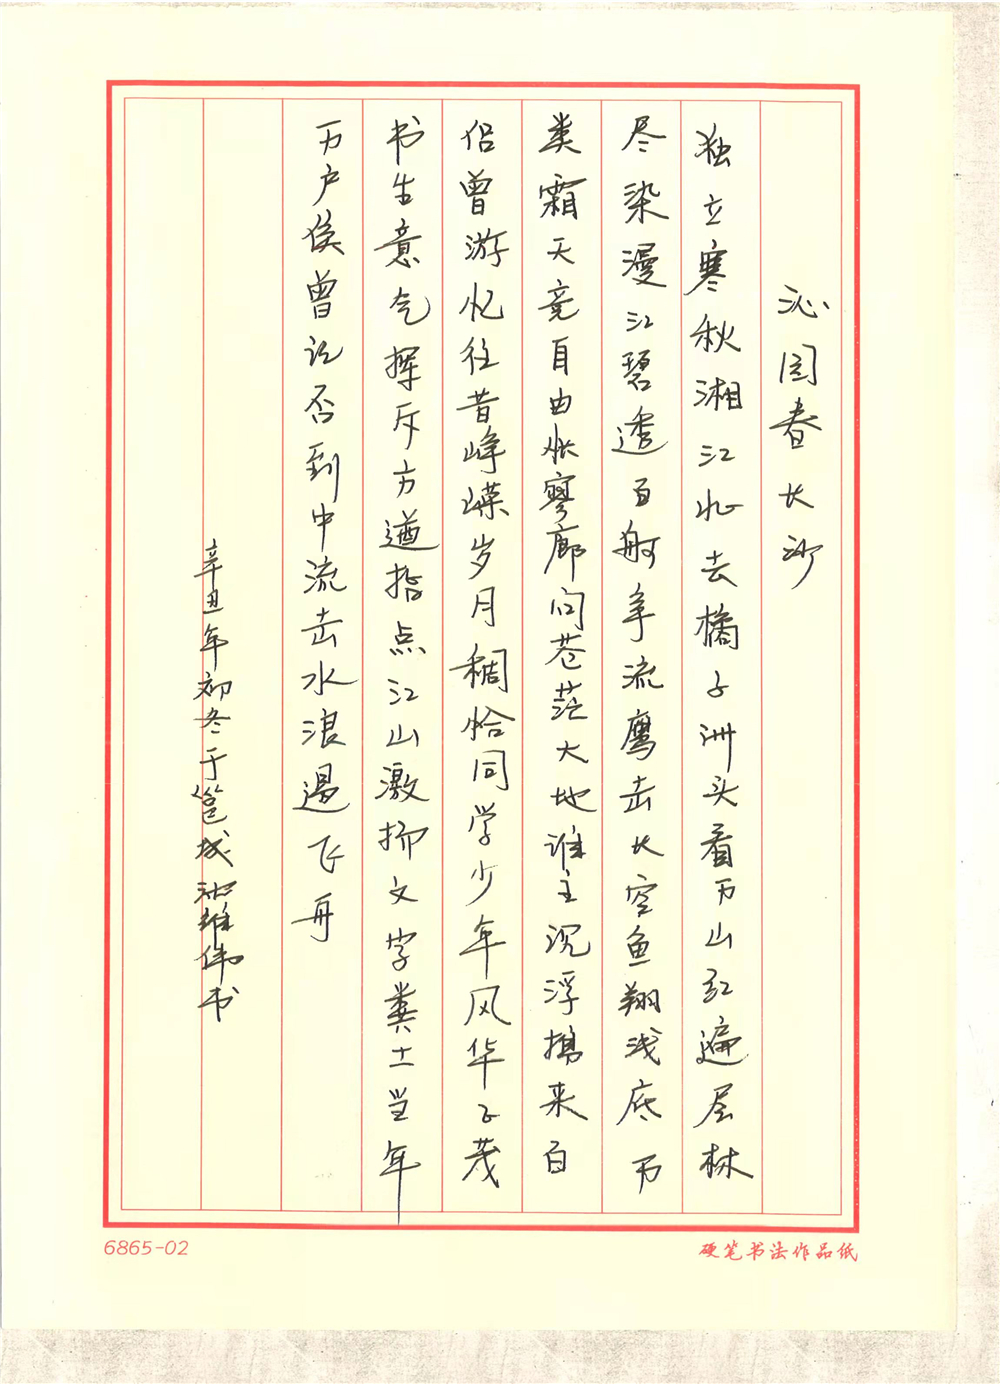 沁园春长沙
独立寒秋湘江北去橘子洲头看万山红遍层林
尽染漫江碧透百舸争流鹰击长空鱼翔浅底万
类霜天竞自由怅寥廓问苍茫大地谁主沉浮携来百
侣曾游忆往昔峥嵘岁月稠恰同学少年风华正茂
书生意气挥斥方遒指点江山激扬文字粪土当年
万户侯曾记否到中流击水浪遏飞舟
辛丑年初冬于邕城池维伟书
6865-02
硬笔书法作品纸